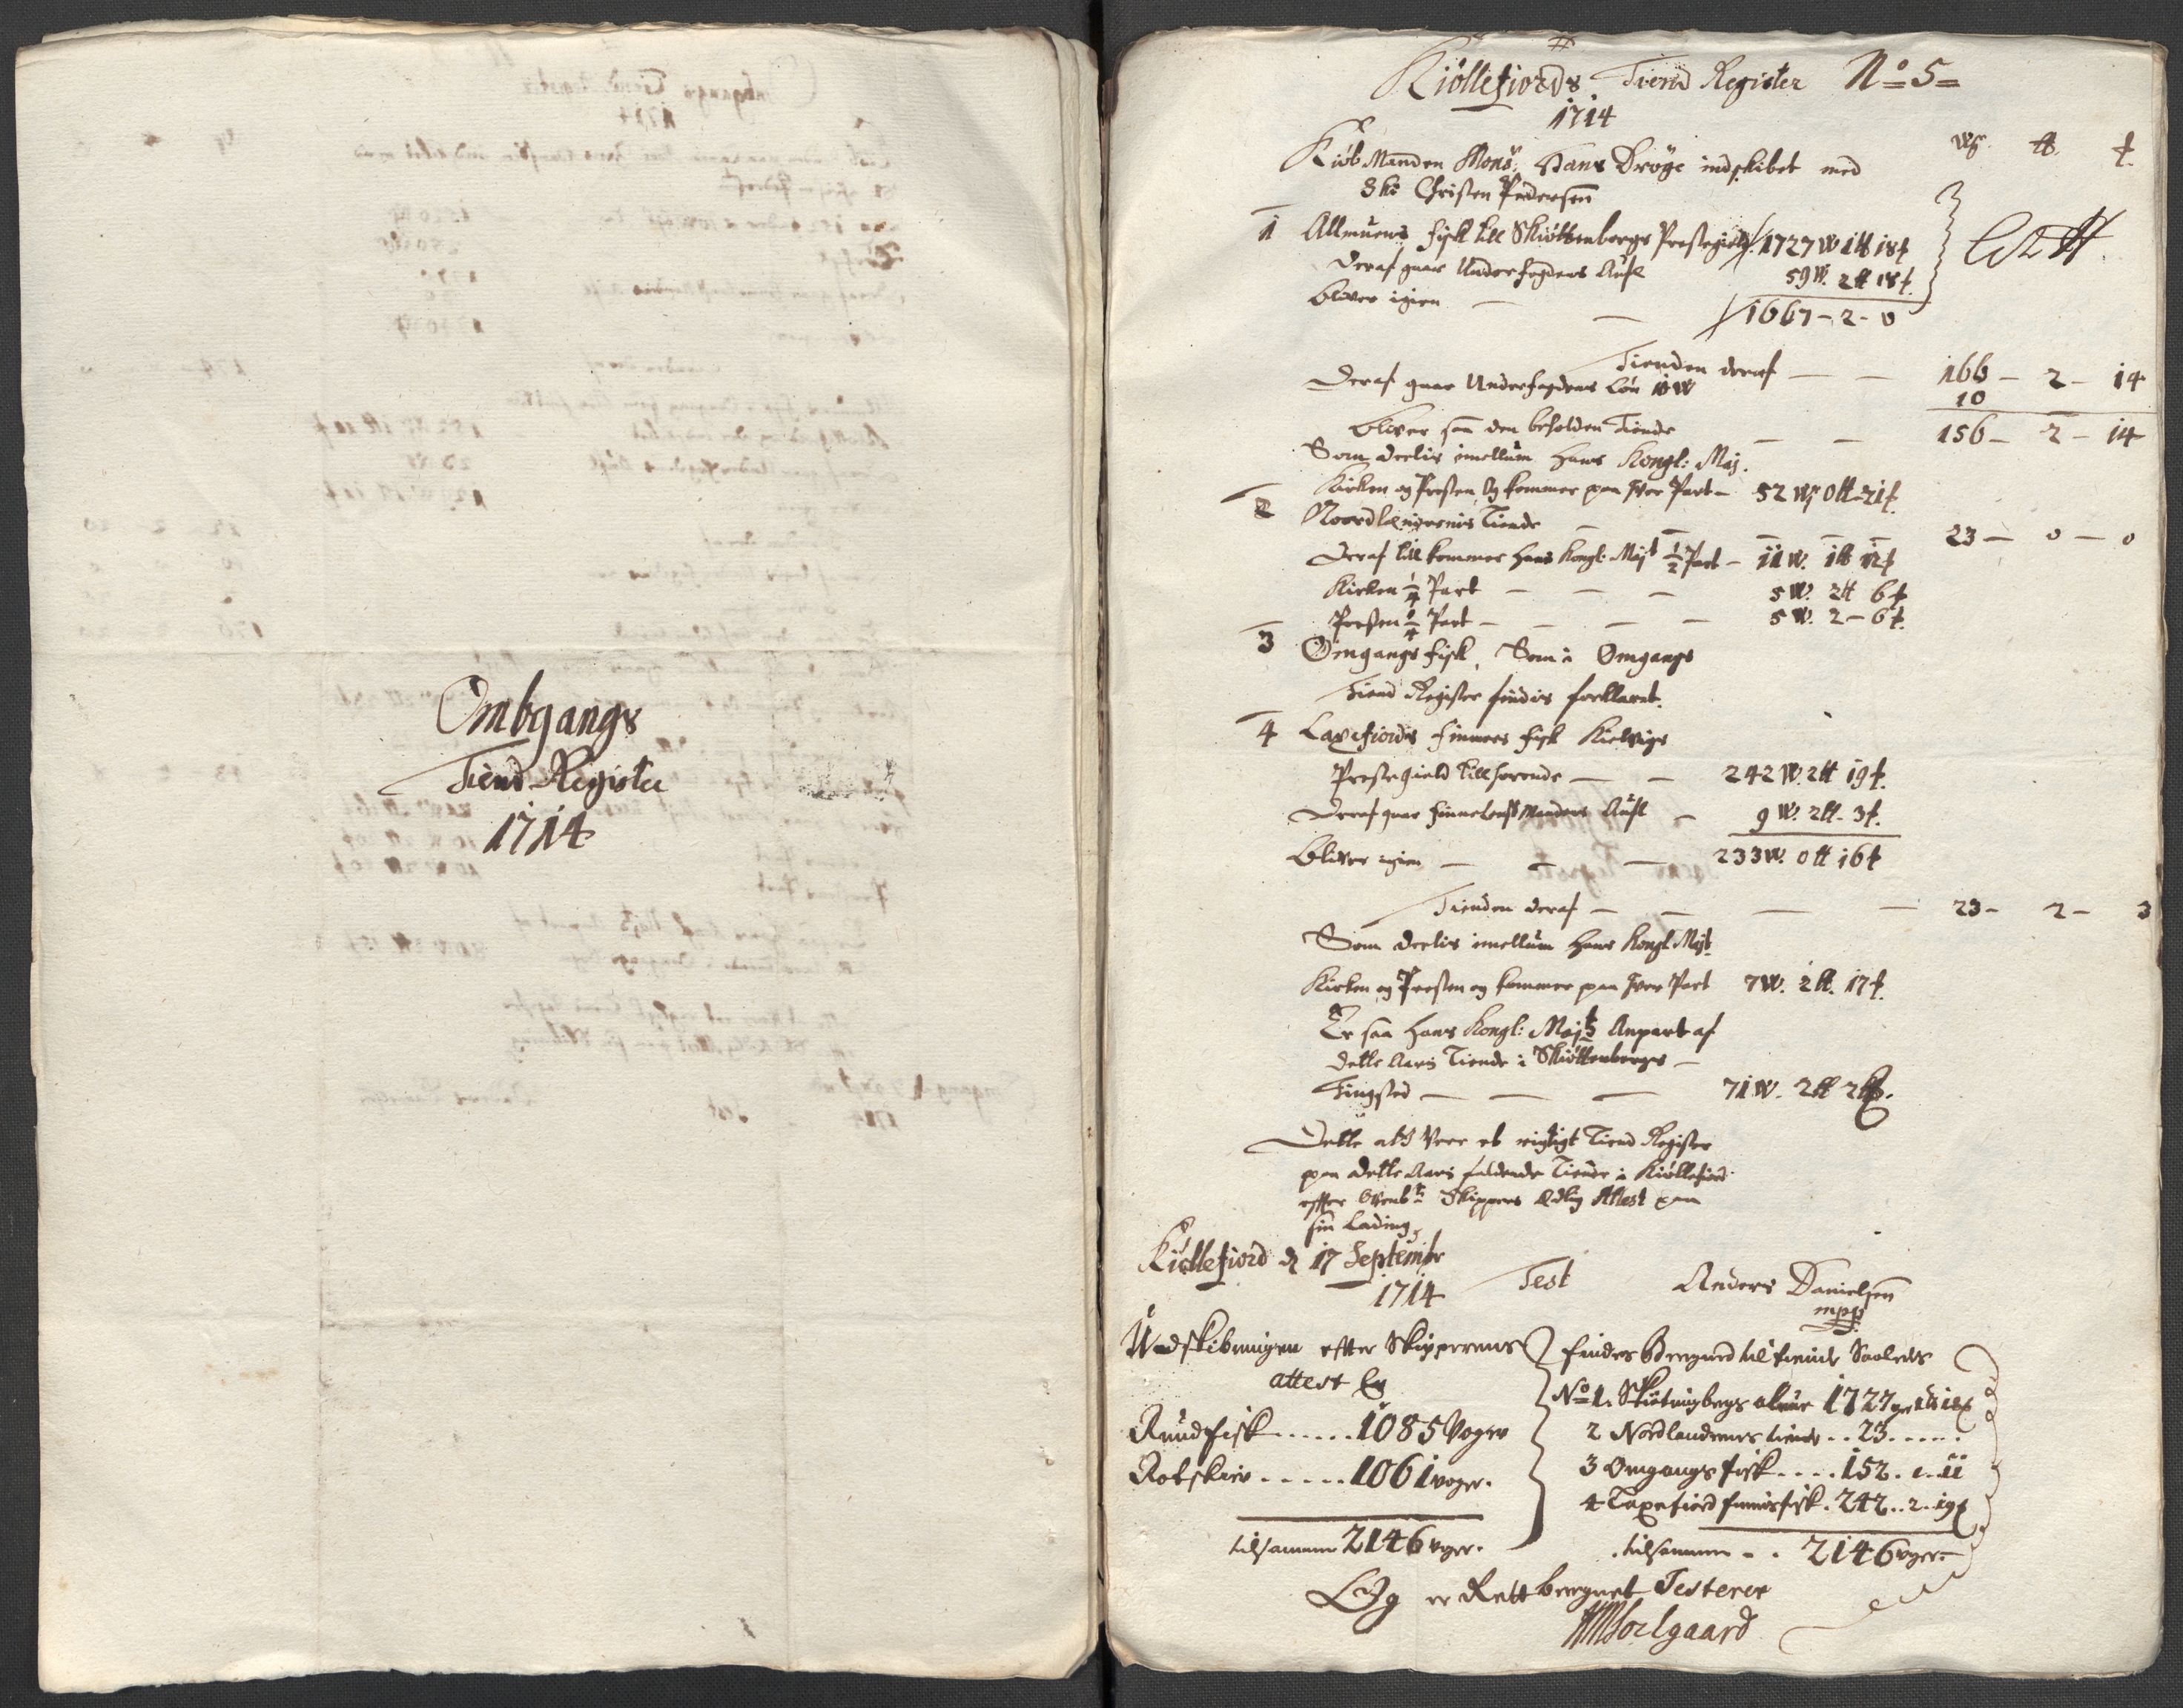 Ombgangs
Tiend Register
1714
Kiöllefiords Tiend Register No 5
1714
Kiöb Manden Mons: Hans Dröge indskibet med
Christen Pedersen
W ℔
1 Allmuens fisk till Skiöttenbergs Prestegield 1727 W 1 ℔ 18
Deraf gaar Underfogdens Aufl 59 W. 2 ℔ 18
Bliver igien — — 1667 - 2 - 0
Tienden deraf — — 166 - 2 - 14
Deraf gaar Underfogdens Løn 10 W 10
Bliver saa den beholden Tiende — — 156 - 2 - 14
Som deelis imellum Hans Kongl: Maj.
Kirken og Presten Og kommer paa hver Part - 52 W 0 ℔ 21
2 Noordlændernis Tiende — 23 - 0 - 0
Deraf till kommer Hans Kongl: Majt 1/2 Part - 11 W. 1 ℔ 12
Kirken 1/4 Part — — — 5 W. 2 ℔ 6
Presten 1/4 Part — — — 5 W. 2 - 6
3 Omgangs fisk, Som i Omgangs
Tiend Register findis forklaret.
4 Laxefiords Finners fisk Kielvigs
Prestegield tillhørende — — 242 W. 2 ℔ 19
Deraf gaar Finnelensmandens Aufl — 9 W. 2 ℔ 3
Bliver igien — — — 233 W. 0 ℔ 16
Tienden deraf — — — — 23 - 2 - 3
Som deelis imellum Hans Kongl Majt
Kirken og Presten og kommer paa hver Part 7 W. 2 ℔. 17
Er saa Hans Kongl: Majts Anpart af
dette Aars Tiende i Skiöttenbergs —
Tingsted — — — 71 W. 2 ℔ 2
Dette at Være et rigtigt Tiend Register
paa dette Aars faldende Tiende i Kiöllefiord
efter Skippers Edlig Attest paa
sin Lading,
Kiöllefiord d 17 Septembr
1714 Test Anders Danielsen
mpp
Udskibningen efter Skipperens
attest Er
Rundfisk ...... 1085 Voger
Rotskier ..... 1061 voger.
tilsamme 2146 vger.
findes Beregned til tiende Saaledes
No 1. Skiötningbergs almue 1727 1 18
2 Nordlændernes tiende .. 23 .....
3 Omgangs fisk .... 152 . 1 . 11
4 Laxefiord finnerfisk . 242 .. 2 . 19
tilsammen .. 2146 vger
Og er Rett bereegnet Testerer
Soelgaard